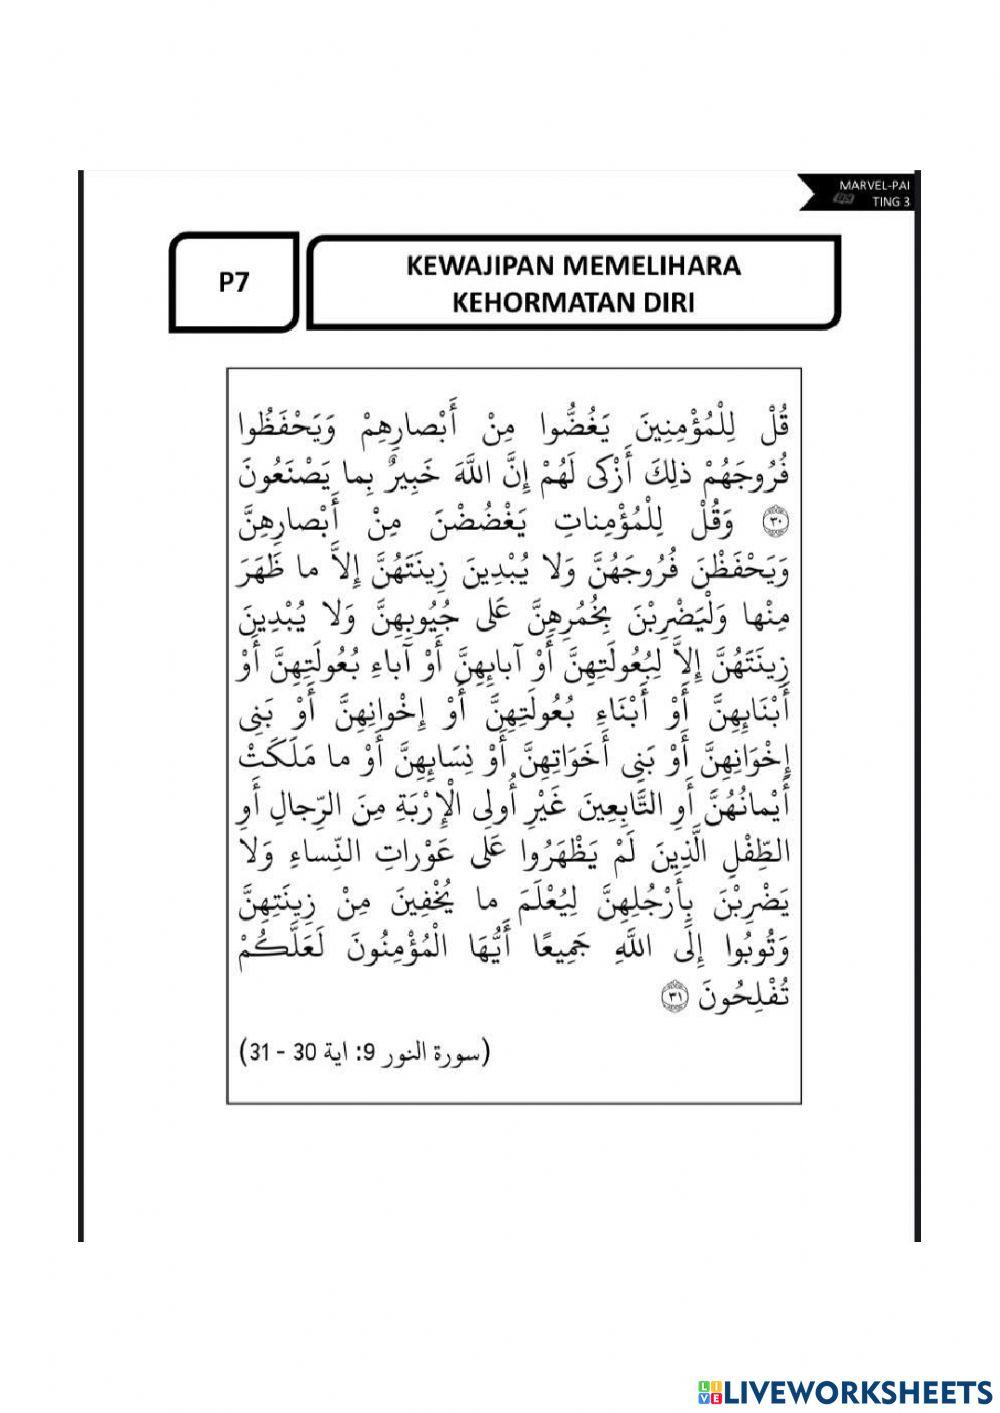 MARVEL-PAI
TING 3
P7
KEWAJIPAN MEMELIHARA
KEHORMATAN DIRI
قُلْ لِلْمُؤْمِنِينَ يَغُضُّوا مِنْ أَبْصارِهِمْ وَيَحْفَظُوا
فُرُوجَهُمْ ذلِكَ أَزْكى لَهُمْ إِنَّ اللَّهَ خَبِيرٌ بِما يَصْنَعُونَ
٣٠ وَقُلْ لِلْمُؤْمِناتِ يَغْضُضْنَ مِنْ أَبْصارِهِنَّ
وَيَحْفَظْنَ فُرُوجَهُنَّ وَلا يُبْدِينَ زِينَتَهُنَّ إِلاَّ ما ظَهَرَ
مِنْها وَلْيَضْرِبْنَ بِخُمُرِهِنَّ عَلى جُيُوبِهِنَّ وَلا يُبْدِينَ
زِينَتَهُنَّ إِلاَّ لِبُعُولَتِهِنَّ أَوْ آبائِهِنَّ أَوْ آباءِ بُعُولَتِهِنَّ أَوْ
أَبْنَائِهِنَّ أَوْ أَبْنَاءِ بُعُولَتِهِنَّ أَوْ إِخْوانِهِنَّ أَوْ بَنِى
إِخْوَانِهِنَّ أَوْ بَنِى أَخَوَاتِهِنَّ أَوْ نِسَائِهِنَّ أَوْ ما مَلَكَتْ
أَيْمانُهُنَّ أَوِ التَّابِعِينَ غَيْرِ أُولِى الْإِرْبَةِ مِنَ الرِّجالِ أَوِ
الطِّفْلِ الَّذِينَ لَمْ يَظْهَرُوا عَلى عَوْراتِ النِّساءِ وَلا
يَضْرِبْنَ بِأَرْجُلِهِنَّ لِيُعْلَمَ ما يُخْفِينَ مِنْ زِينَتِهِنَّ
وَتُوبُوا إِلَى اللَّهِ جَمِيعًا أَيُّهَا الْمُؤْمِنُونَ لَعَلَّكُمْ
تُفْلِحُونَ ٣١
(سورة النور 9: اية 30 - 31)
LIVEWORKSHEETS